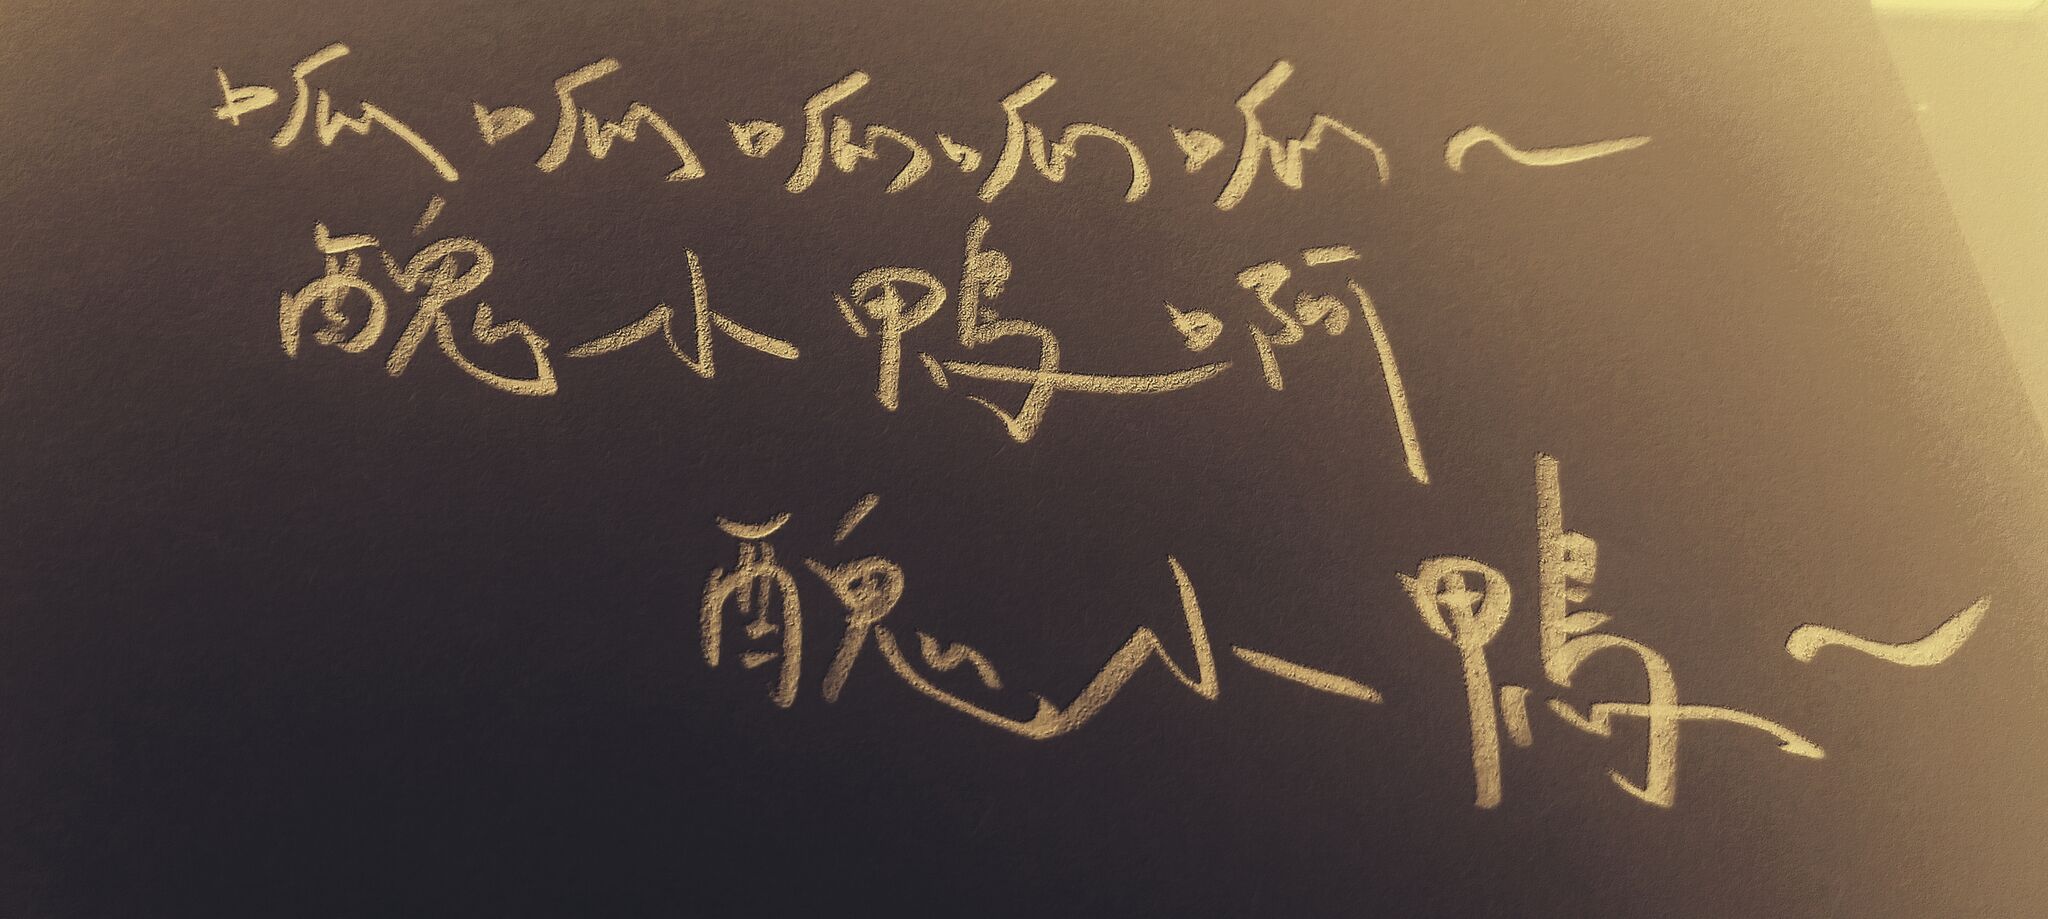 呱呱呱呱呱～
醜小鴨啊
醜小鴨～